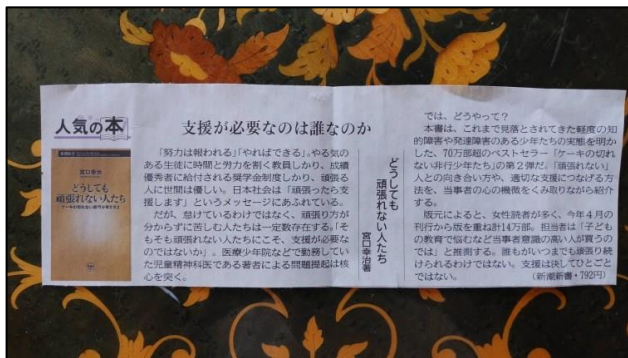 人気の本
宮口幸治
どうしても
頑張れない人たち
支援が必要なのは誰なのか
「努力は報われる」「やればできる」。やる気の
ある生徒に時間と労力を割く教員しかり、成績
優秀者に給付される奨学金制度しかり、頑張る
人に世間は優しい。日本社会は「頑張ったら支
援します」というメッセージにあふれている。
だが、怠けているわけではなく、頑張り方が
分からずに苦しむ人たちは一定数存在する。「そ
もそも頑張れない人たちにこそ、支援が必要な
のではないか」。医療少年院などで勤務してい
た児童精神科医である著者による問題提起は核
心を突く。
どうしても
頑張れない人たち
宮口幸治著
では、どうやって？
本書は、これまで見落とされてきた軽度の知
的障害や発達障害のある少年たちの実態を明か
した、70万部超のベストセラー「ケーキの切れ
ない非行少年たち」の第2弾だ。「頑張れない」
人との向き合い方や、適切な支援につなげる方
法を、当事者の心の機微をくみ取りながら紹介
する。
版元によると、女性読者が多く、今年4月の
刊行から版を重ね計14万部。担当者は「子ども
の教育で悩むなど当事者意識の高い人が買うの
では」と推測する。誰もがいつまでも頑張り続
けられるわけではない。支援は決してひとごと
ではない。
（新潮新書・792円）